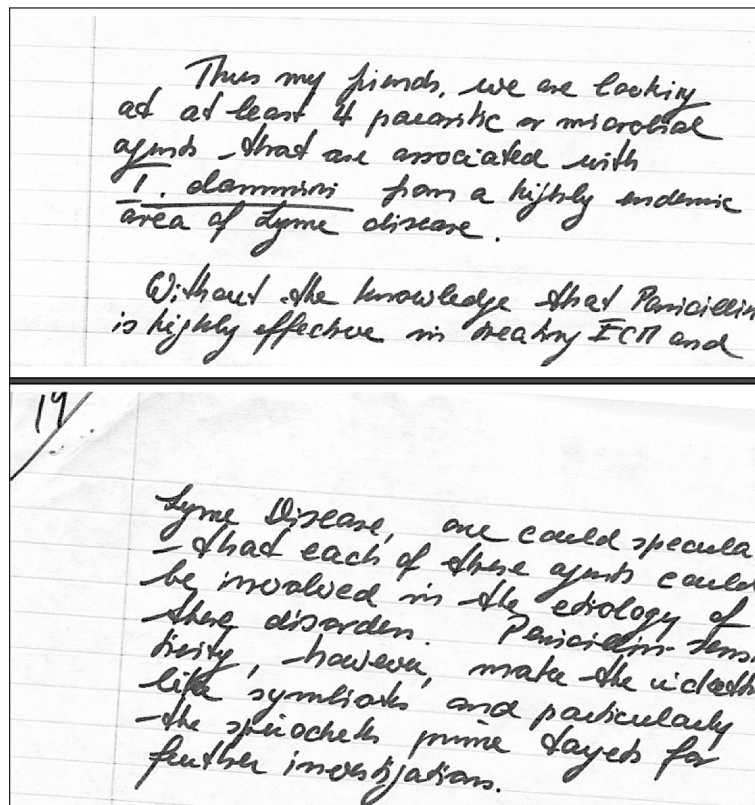 Thus my friends, we are looking
at at least 4 parasitic or microbial
agents that are associated with
I. dammini from a highly endemic
area of Lyme disease.
Without the knowledge that Penicillin
is highly effective in treating ECM and
19
Lyme Disease, one could specula
that each of these agents could
be involved in the etiology of
these disorders. Penicillin-sens
tivity, however, make the
like symbionts and particularly
the spirochetes prime targets for
further investigations.